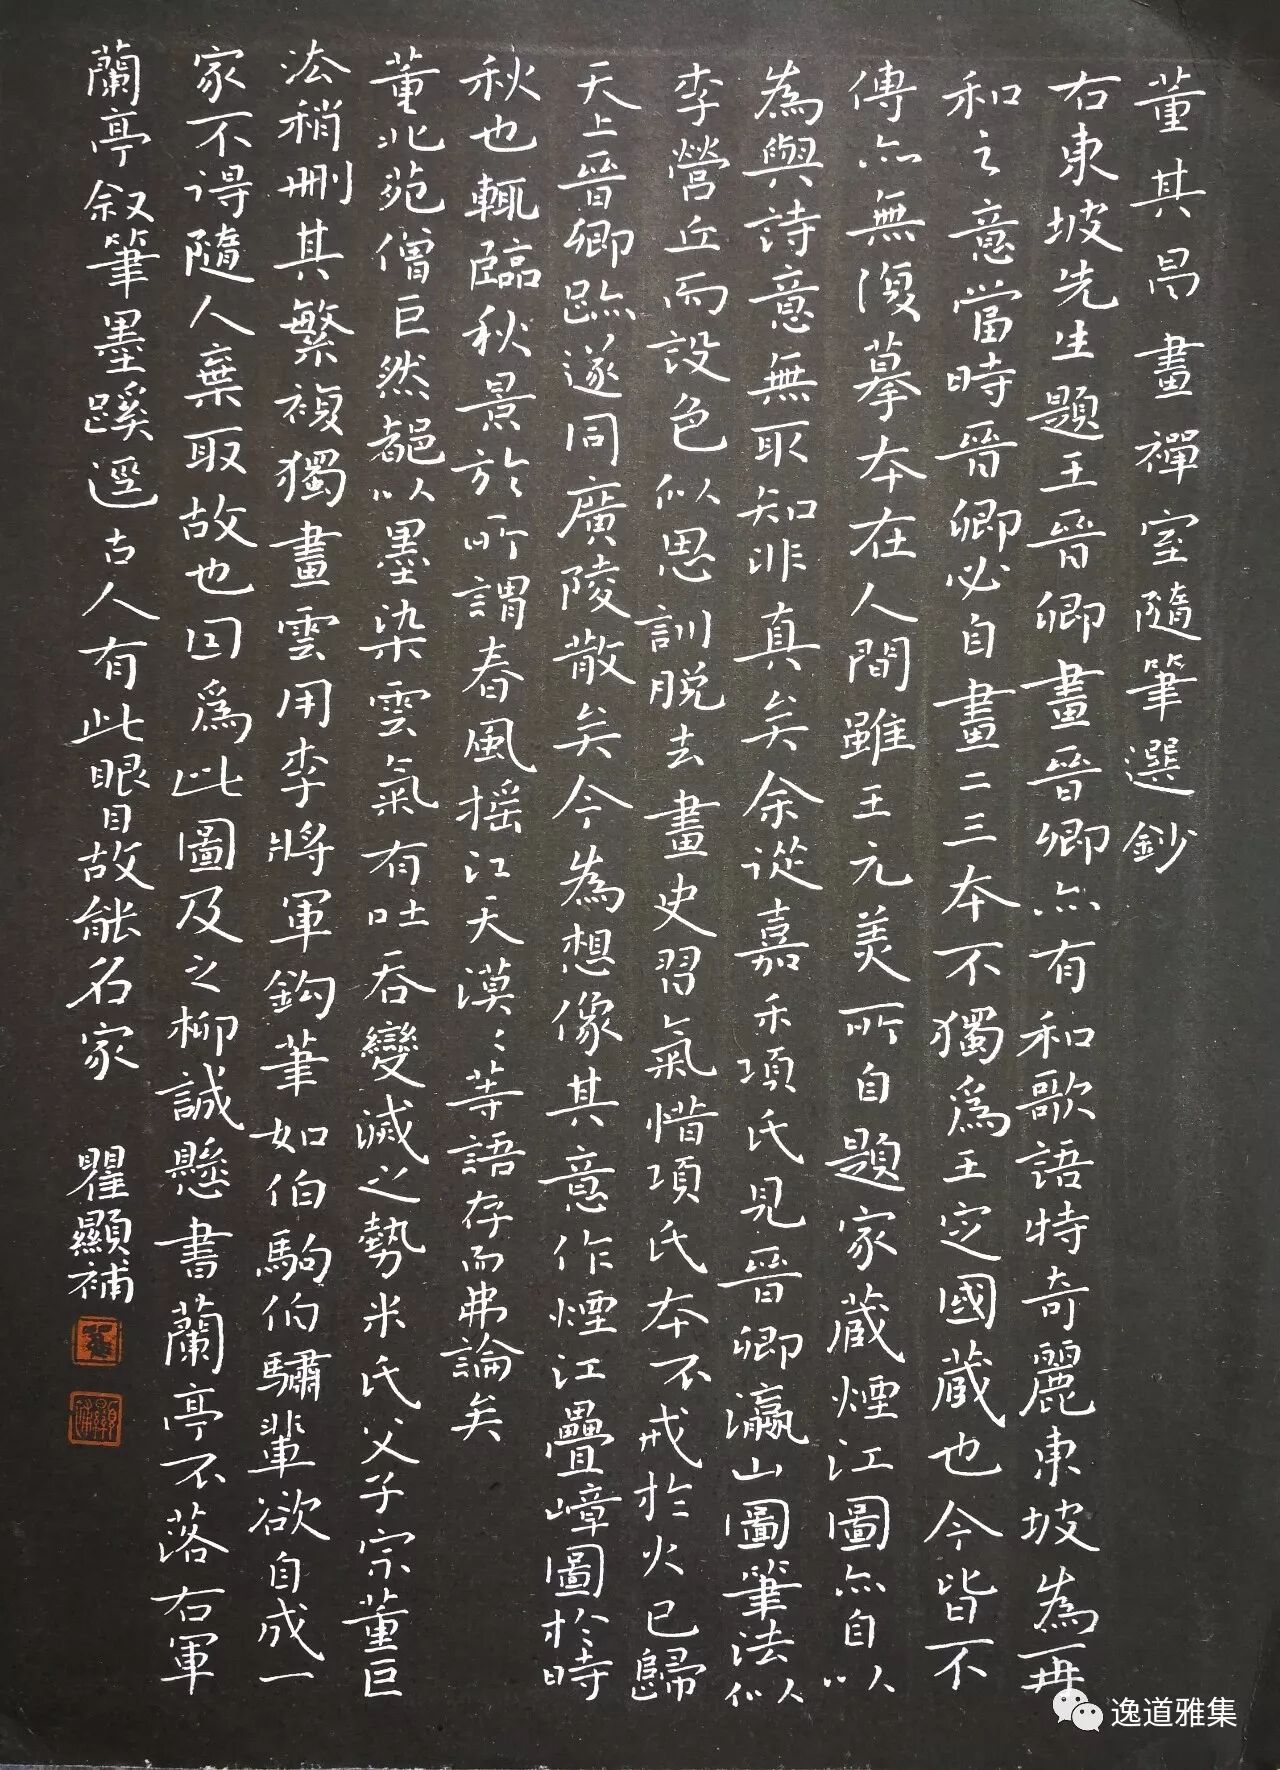 董其昌畫禪室隨筆選鈔
右東坡先生題王晉卿畫晉卿亦有和歌語特奇麗東坡為再
和之意當時晉卿必自畫二三本不獨爲王定國藏也今皆不
傳亦無復摹本在人間雖王元美所自題家藏煙江圖亦自以
為與詩意無取知非真矣余從嘉禾項氏見晉卿瀛山圖筆法似
李營丘而設色似思訓脫去畫史習氣惜項氏本不戒於火已歸
天上晉卿跡遂同廣陵散矣今為想像其意作煙江疊嶂圖於時
秋也輒臨秋景於所謂春風搖江天漠〻等語存而弗論矣
董北苑僧巨然都以墨染雲氣有吐吞變滅之勢米氏父子宗董巨
法稍刪其繁複獨畫雲用李將軍鈎筆如伯駒伯驌輩欲自成一
家不得隨人棄取故也因爲此圖及之柳誠懸書蘭亭不落右軍
蘭亭叙筆墨蹊逕古人有此眼目故能名家
瞿顯補
逸道雅集